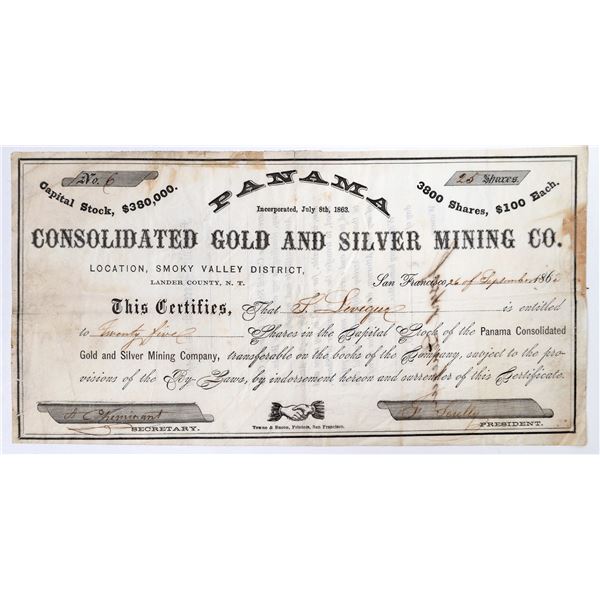 No. 6
25 Shares.
PANAMA
Capital Stock, $380,000.
3800 Shares, $100 Each.
Incorporated, July 8th, 1863.
CONSOLIDATED GOLD AND SILVER MINING CO.
LOCATION, SMOKY VALLEY DISTRICT,
LANDER COUNTY, N. T.
San Francisco, 26 of September 186
This Certifies, That is entitled
to Twenty five Shares in the Capital Stock of the Panama Consolidated
Gold and Silver Mining Company, transferable on the books of the Company, subject to the pro-
visions of the By-Laws, by indorsement hereon and surrender of this Certificate.
SECRETARY.
Towne & Bacon, Printers, San Francisco.
PRESIDENT.